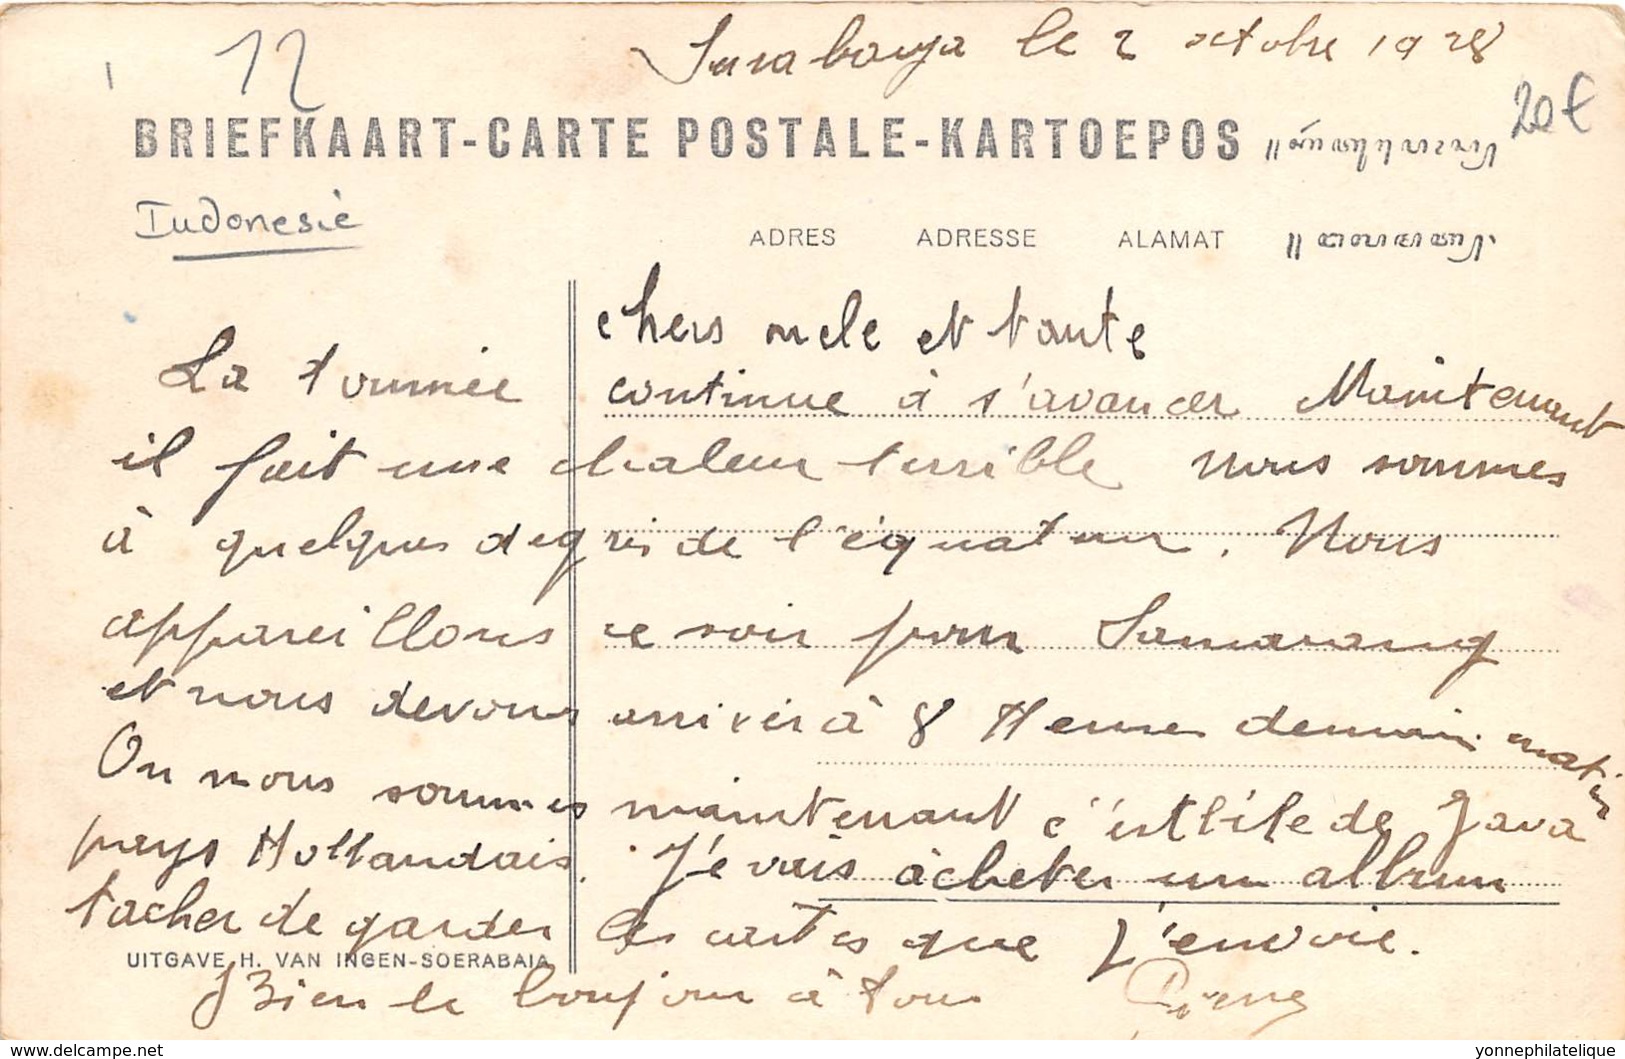 Surabaya le 2 octobre 1928
12
20€
BRIEFKAART-CARTE POSTALE-KARTOEPOS
Indonesie
ADRES ADRESSE ALAMAT
chers oncle et tante
La tournée continue à s'avancer Maintenant
il fait une chaleur terrible nous sommes
à quelques degrés de l'équateur. Nous
appareillons ce soir pour Samarang
et nous devons arriver à 8 Heures demain matin
On nous sommes maintenant c'est l'ile de Java
pays Hollandais. J'e vais âcheter un album
tacher de garder les cartes que j'envoie.
UITGAVE H. VAN INGEN-SOERABAIA
Bien le bonjour à tous Pierre
www.delcampe.net
yonnephilatelie